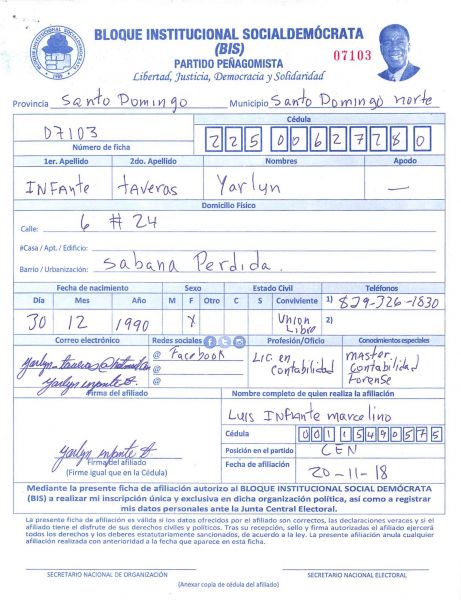 BLOQUE INSTITUCIONAL SOCIALDEMÓCRATA
(BIS)
PARTIDO PEÑAGOMISTA
07103
Libertad, Justicia, Democracia y Solidaridad
Provincia Santo Domingo Municipio Santo Domingo norte
Cédula
07103
22500627280
Número de ficha
1er. Apellido 2do. Apellido Nombres Apodo
INFAnte taveras Yarlyn —
Domicilio Físico
Calle: 6 # 24
#Casa / Apt. / Edificio:
Barrio / Urbanización: Sabana Perdida.
Fecha de nacimiento Sexo Estado Civil Teléfonos
Día Mes Año M F Otro C S Conviviente 1) 829-326-1830
30 12 1990 X Union Libre 2)
Correo electrónico Redes sociales Profesión/Oficio Conocimientos especiales
@ Facebook
@
@
Lic. en Contabilidad
master Contabilidad Forense
Firma del afiliado
Nombre completo de quien realiza la afiliación
Luis Infante marcelino
Cédula 00115490575
Posición en el partido CEN
Firma del afiliado
(Firme igual que en la Cédula)
Fecha de afiliación 20-11-18
Mediante la presente ficha de afiliación autorizo al BLOQUE INSTITUCIONAL SOCIAL DEMÓCRATA
(BIS) a realizar mi inscripción única y exclusiva en dicha organización política, así como a registrar
mis datos personales ante la Junta Central Electoral.
La presente ficha de afiliación es válida si los datos ofrecidos por el afiliado son correctos, las declaraciones veraces y si el
afiliado tiene el disfrute de sus derechos civiles y políticos. Tras su recepción, sello y firma autorizadas el afiliado ejercerá
todos los derechos y los deberes estatutariamente sancionados, de acuerdo a la ley. La presente afiliación anula cualquier
afiliación realizada con anterioridad a la fecha que aparece en esta ficha.
SECRETARIO NACIONAL DE ORGANIZACIÓN SECRETARIO NACIONAL ELECTORAL
(Anexar copia de cédula del afiliado)